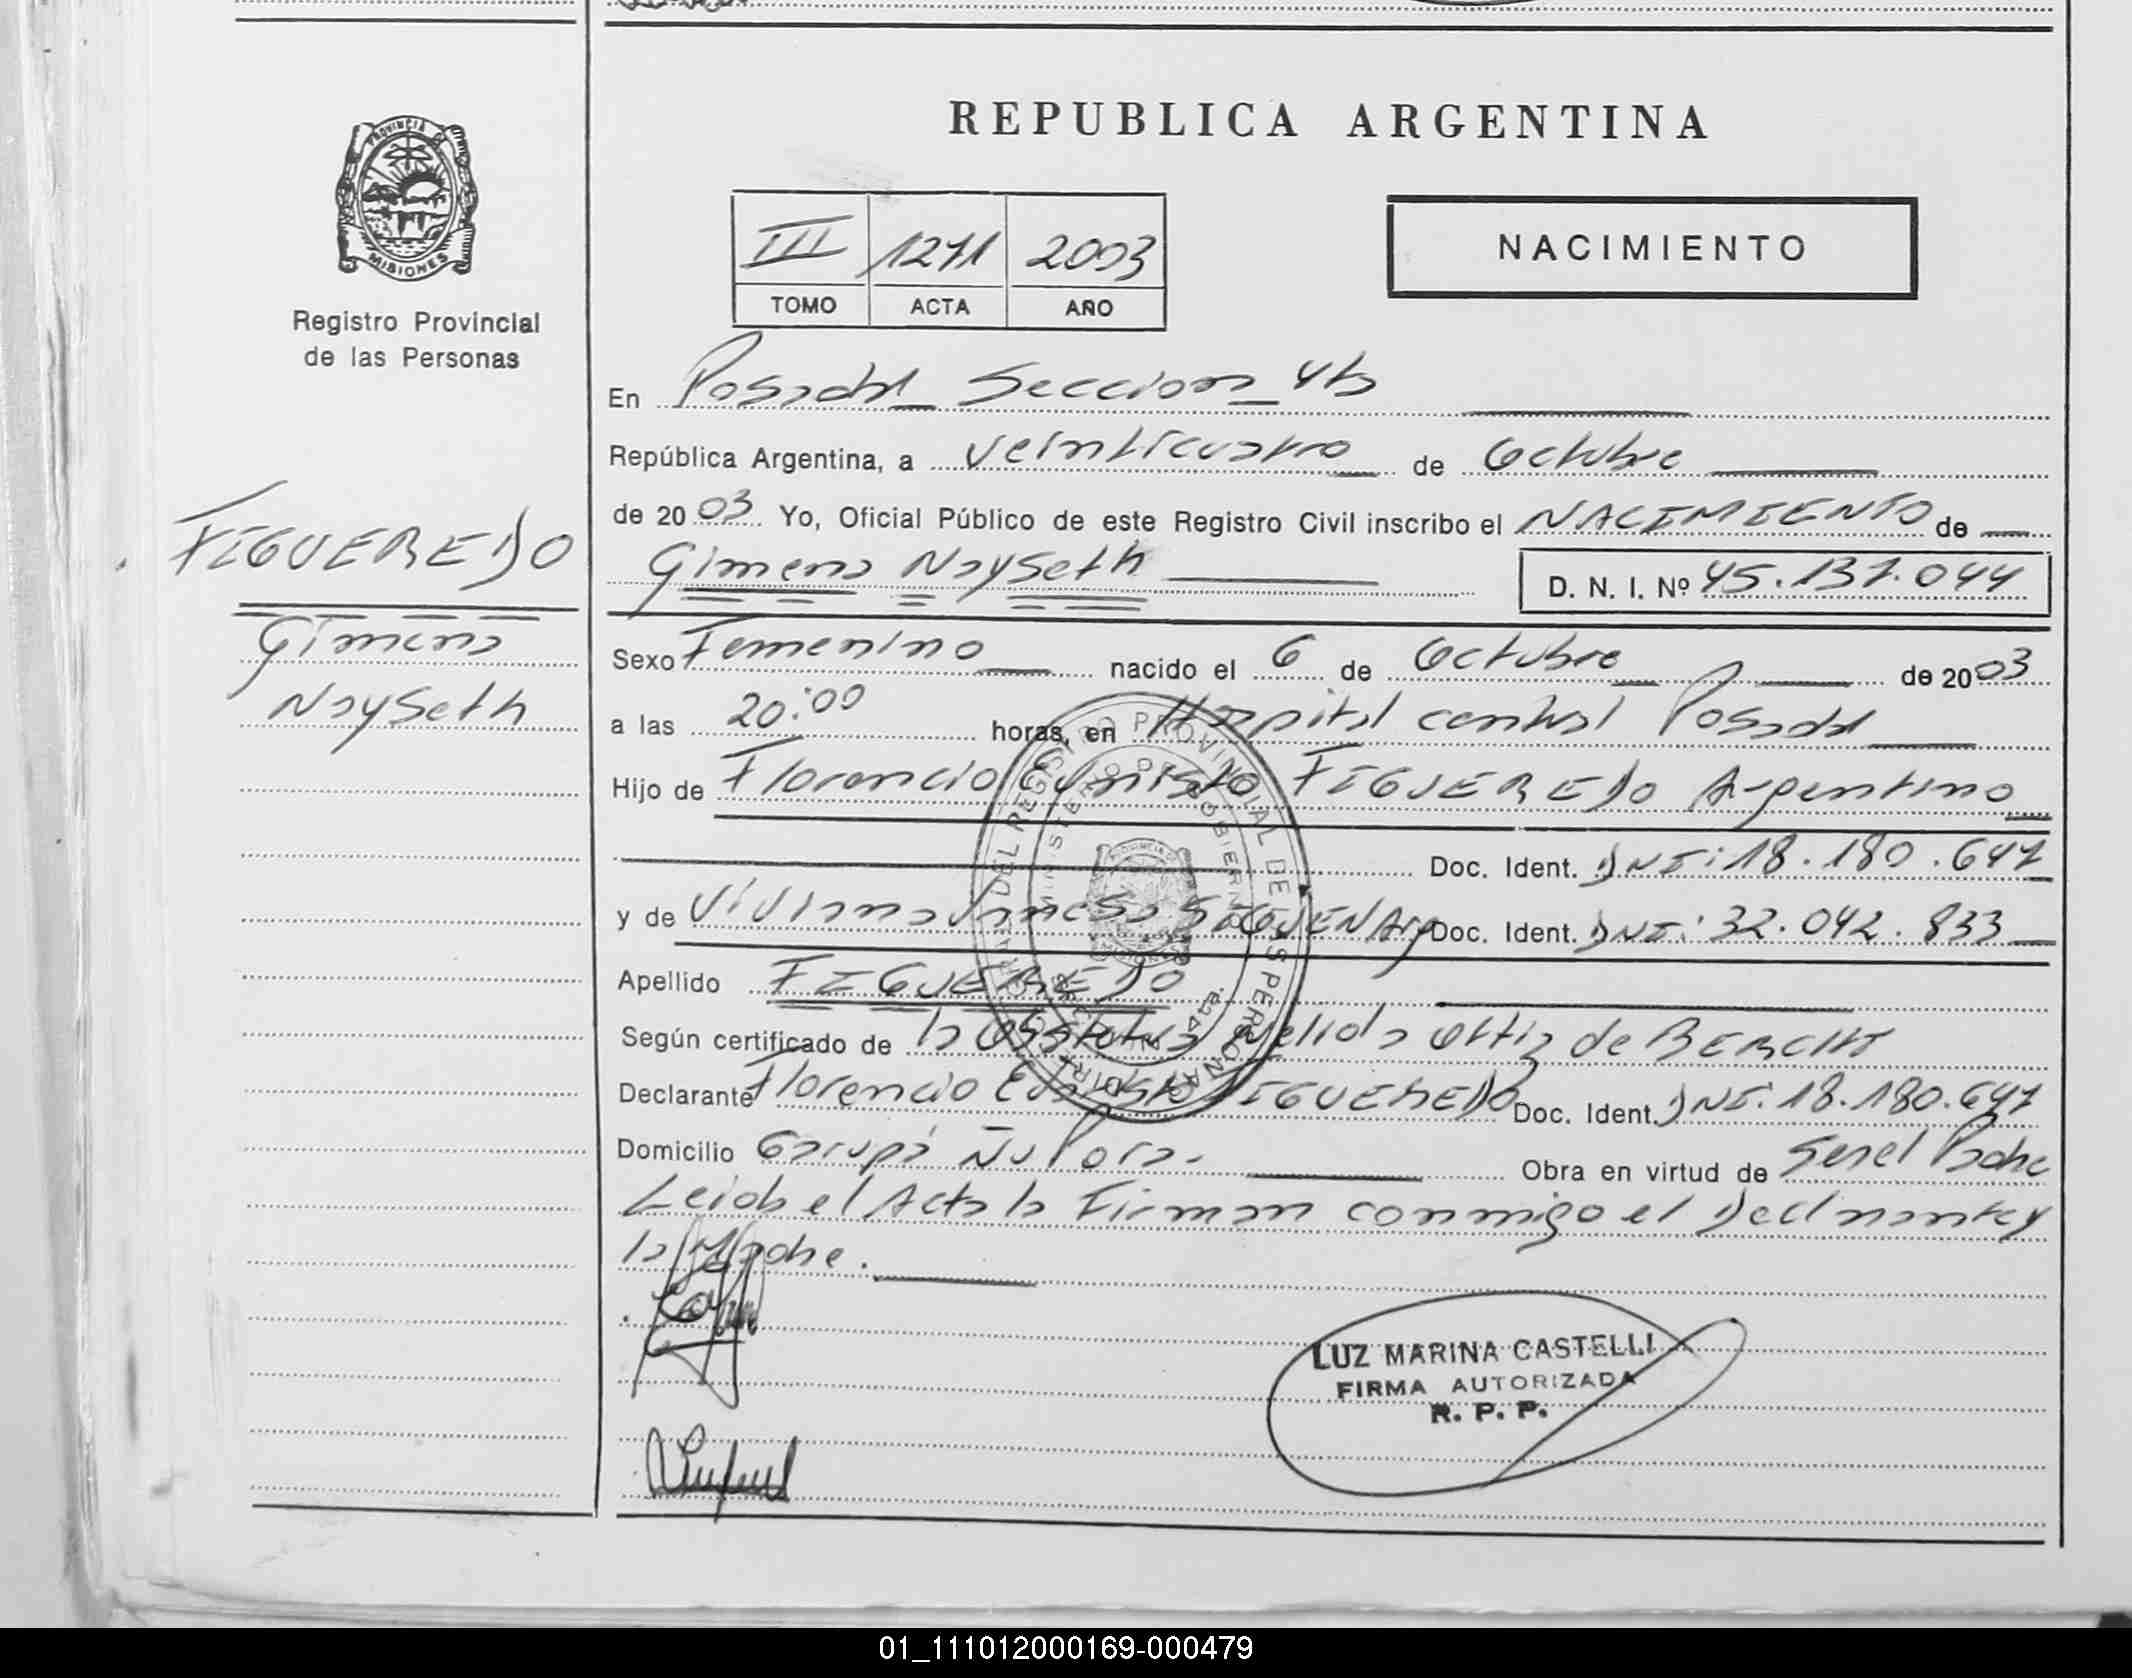 REPUBLICA ARGENTINA
PROVINCIA DE
MISIONES
Registro Provincial
de las Personas
NACIMIENTO
III 1271 2003
TOMO ACTA AÑO
En Posadas Seccion 4ta
República Argentina, a veinticuatro de Octubre
de 2003 Yo, Oficial Público de este Registro Civil inscribo el NACIMIENTO de
Gimena Nayseth D. N. I. Nº 45.137.044
FIGUEREDO
Gimena
Nayseth
Sexo Femenino nacido el 6 de Octubre de 2003
a las 20:00 horas, en Hospital central Posadas
Hijo de Florencio Evaristo FIGUEREDO Argentino
Doc. Ident. DNI: 18.180.647
y de Viviana Vanesa Doc. Ident. DNI: 32.042.833
Apellido FIGUEREDO
Según certificado de la Obstetra Nelida Ortiz de
Declarante Florencio Evaristo FIGUEREDO Doc. Ident. DNI: 18.180.647
Domicilio Garupá Ñu Pora. Obra en virtud de ser el Padre
Leida el Acta la Firman conmigo el Declarante y
la Madre.
LUZ MARINA CASTELLI
FIRMA AUTORIZADA
R. P. P.
01_111012000169-000479